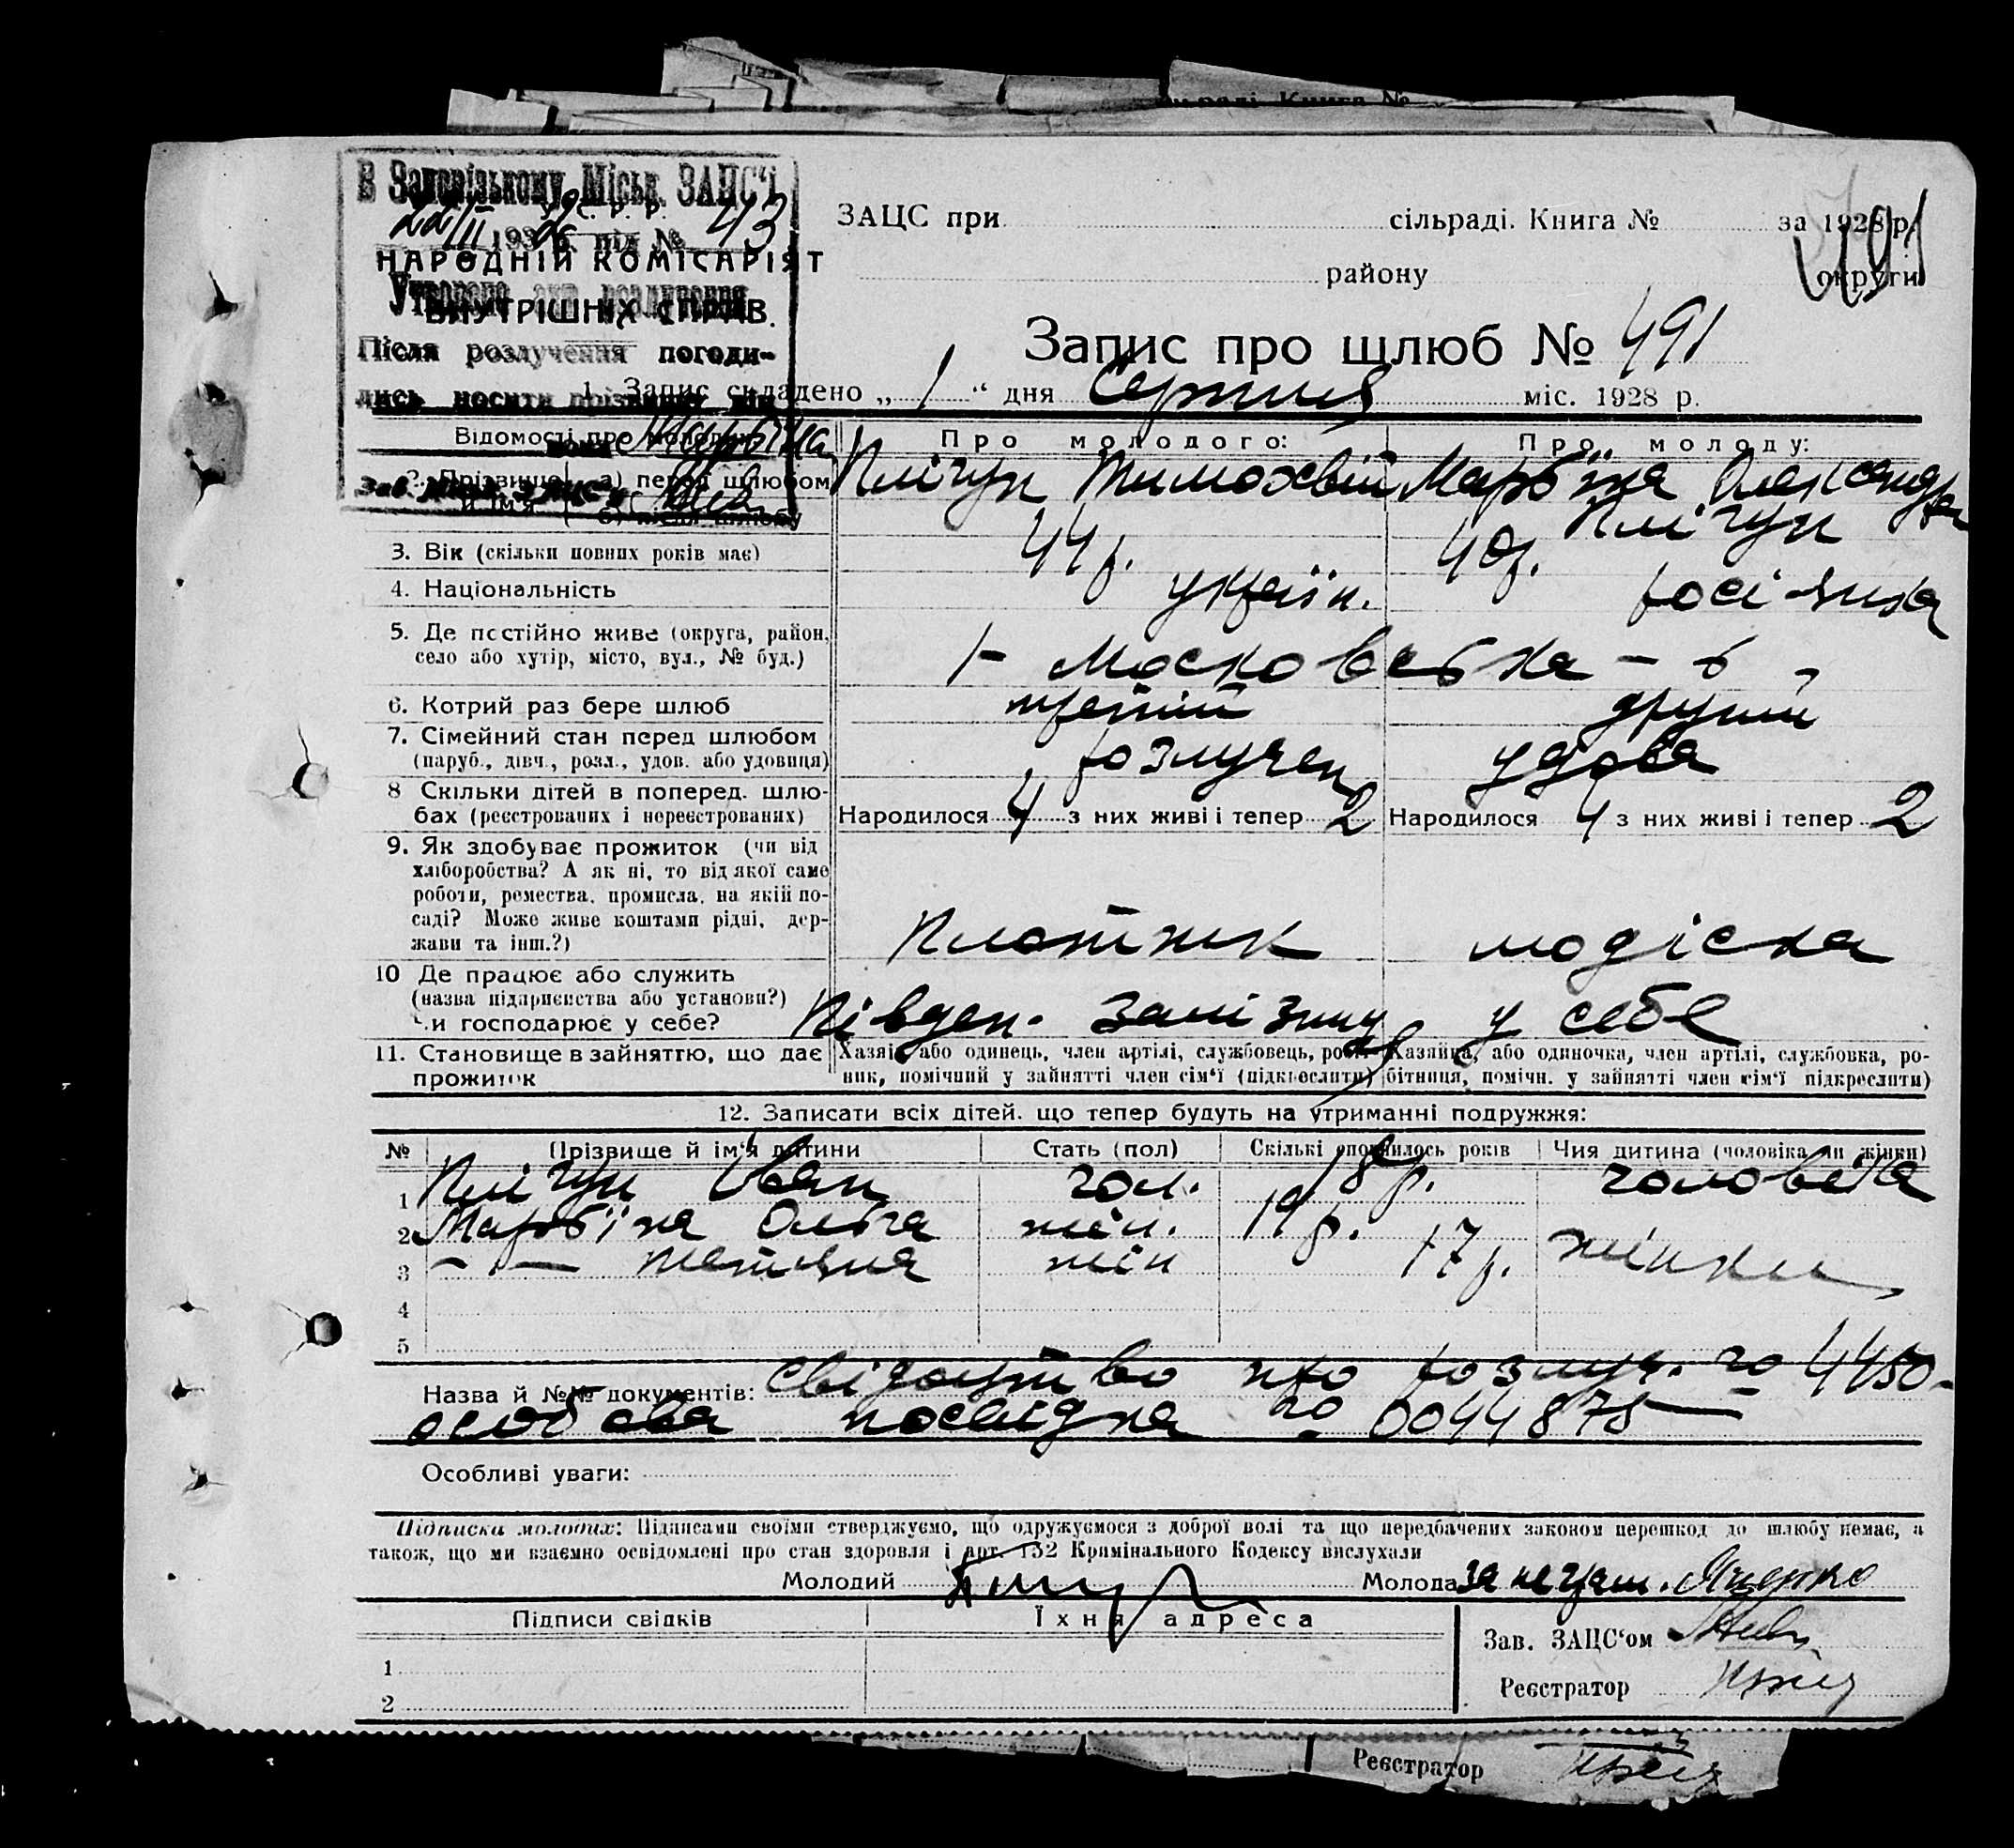 В Запорізькому Міськ. ЗАЦС'і
У. С. Р. Р.
193 р. під № 43
НАРОДНІЙ КОМІСАРІЯТ
Утворено акт розлучення
ВНУТРІШНІХ СПРАВ.
Після розлучення погоди-
лись носити прізвища він
вона Марв'їна
ЗАЦС при сільраді. Книга № за 1928 р.
491
району округи
Запис про шлюб № 491
1. Запис складено „ 1 “ дня Серпня міс. 1928 р.
Відомості про молодих Про молодого: Про молоду:
2. Прізвище й ім'я а) перед шлюбом Плігун Тимохвій Марв'їна Олександра
б) після шлюбу Плігун
3. Вік (скільки повних років має) 44 р. 40 р.
4. Національність україн. росіянка
5. Де постійно живе (округа, район,
село або хутір, місто, вул., № буд.) 1- Московська - 6
6. Котрий раз бере шлюб третій другий
7. Сімейний стан перед шлюбом
(паруб., дівч., розл., удов. або удовиця) розлучен удова
8 Скільки дітей в поперед. шлю-
бах (реєстрованих і нереєстрованих) Народилося 4 з них живі і тепер 2 Народилося 4 з них живі і тепер 2
9. Як здобуває прожиток (чи від
хліборобства? А як ні, то від якої саме
роботи, ремества, промисла, на якій по-
саді? Може живе коштами рідні, дер-
жави та інш.?) Плотник модіска
10 Де працює або служить
(назва підприємства або установи?)
Чи господарює у себе? Півден. залізниц у себе
11. Становище в зайняттю, що дає Хазяїн або одинець, член артілі, службовець, робіт- Хазяйка, або одиночка, член артілі, службовка, ро-
прожиток ник, помічний у зайнятті член сім'ї (підкреслити) бітниця, помічн. у зайнятті член сім'ї підкреслити)
12. Записати всіх дітей. що тепер будуть на утриманні подружжя:
№ Прізвище й ім'я дитини Стать (пол) Скількі сповнилось років Чия дитина (чоловіка чи жінки)
1 Плігун Іван чол. 18 р. чоловіка
2 Марв'їна Ольга жін. 19 р.
3 - " - Тетяна жін 17 р. жінки
4
5
Назва й №№ документів: Свідоцтво про розлуч. № 4450-
особова посвідка № 0044875
Особливі уваги:
Підписка молодих: Підписами своїми стверджуємо, що одружуємося з доброї волі та що передбачених законом перешкод до шлюбу немає, а
також, що ми взаємно освідомлені про стан здоров'я і арт. 152 Кримінального Кодексу вислухали
Молодий Молода за неграм. Яценко
Підписи свідків Їхня адреса
Зав. ЗАЦС'ом
1
Реєстратор
2
Реєстратор